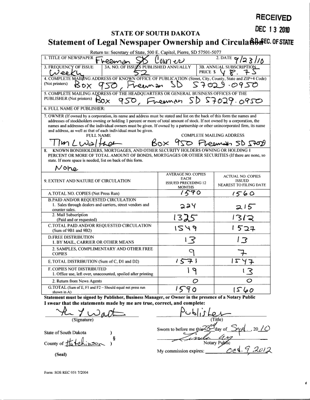 RECEIVED
DEC 13 2010
S.D. SEC. OF STATE
STATE OF SOUTH DAKOTA
Statement of Legal Newspaper Ownership and Circulation
Return to: Secretary of State, 500 E. Capitol, Pierre, SD 57501-5077
1. TITLE OF NEWSPAPER Freeman SD Courier
2. DATE 9/23/10
3. FREQUENCY OF ISSUE Weekly
3A. NO. OF ISSUES PUBLISHED ANNUALLY 52
3B. ANNUAL SUBSCRIPTION PRICE $ 48.75
4. COMPLETE MAILING ADDRESS OF KNOWN OFFICE OF PUBLICATION (Street, City, County, State and ZIP+4 Code)
(Not printers) Box 950, Freeman SD 57029-0950
5. COMPLETE MAILING ADDRESS OF THE HEADQUARTERS OF GENERAL BUSINESS OFFICES OF THE
PUBLISHER (Not printer) Box 950, Freeman SD 57029-0950
6. FULL NAME OF PUBLISHER:
7. OWNER (If owned by a corporation, its name and address must be stated and list on the back of this form the names and
addresses of stockholders owning or holding 1 percent or more of total amount of stock. If not owned by a corporation, the
names and addresses of the individual owners must be given. If owned by a partnership or other unincorporated firm, its name
and address, as well as that of each individual must be given.
FULL NAME
COMPLETE MAILING ADDRESS
Tim L Waltner
Box 950 Freeman SD 57029
8. KNOWN BONDHOLDERS, MORTGAGEES, AND OTHER SECURITY HOLDERS OWNING OR HOLDING 1
PERCENT OR MORE OF TOTAL AMOUNT OF BONDS, MORTGAGES OR OTHER SECURITIES (If there are none, so
state. If more space is needed, list on back of this form.
None
9. EXTENT AND NATURE OF CIRCULATION
AVERAGE NO. COPIES
EACH
ISSUED PRECEDING 12
MONTHS
ACTUAL NO. COPIES
ISSUED
NEAREST TO FILING DATE
A. TOTAL NO. COPIES (Net Press Run) 1590 1560
B. PAID AND/OR REQUESTED CIRCULATION
1. Sales through dealers and carriers, street vendors and
counter sales. 224 215
2. Mail Subscription
(Paid and or requested) 1325 1312
C. TOTAL PAID AND/OR REQUESTED CIRCULATION
(Sum of 9B1 and 9B2) 1549 1527
D. FREE DISTRIBUTION
1. BY MAIL, CARRIER OR OTHER MEANS 13 13
2. SAMPLES, COMPLIMENTARY AND OTHER FREE
COPIES 9 7
E. TOTAL DISTRIBUTION (Sum of C, D1 and D2) 1571 1547
F. COPIES NOT DISTRIBUTED
1. Office use, left over, unaccounted, spoiled after printing 19 13
2. Return from News Agents 0 0
G. TOTAL (Sum of E, F1 and F2 - Should equal net press run
shown in A) 1590 1560
Statement must be signed by Publisher, Business Manager, or Owner in the presence of a Notary Public
I swear that the statements made by me are true, correct, and complete:
Publisher
(Signature)
(Title)
State of South Dakota )
County of Hutchinson ) §
(Seal)
Sworn to before me this day of Sept, 2010
Notary Public
My commission expires: Oct 9 2012
Form: SOS REC 051 7/2004